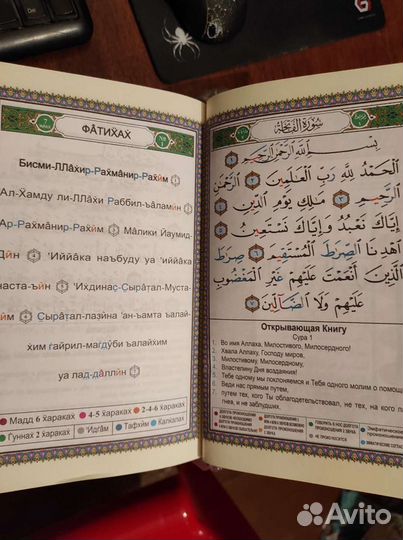 ФА̂ТИХ̇АХ
7
№
1
Бисми-ЛЛа̂хир-Рах̇ма̂нир-Рах̇ӣм ۝
Ал-Х̇амду ли-ЛЛа̂хи Раббил-ъа̂лам
Ар-Рах̇ма̂нир-Рах̇ӣм ۝ Ма̂лики Йаумид-
Дӣн ۝ 'Иййа̂ка наъбуду уа 'иййа̂ка
наста-ъӣн ۝ 'Ихдинас̣-С̣ыра̂тал-Муста-
۝ С̣ыра̂тал-лаз̇ӣна 'ан-ъамта ъалай-
х̇им г̇айрил-маг̇д̣ӯби ъалайх̇им
уа лад̣-д̣а̂ллӣн ۝
Мадд 6 х̇араках 4-5 х̇араках 2-4-6 х̇араках
Гуннах 2 х̇араках 'Идг̇а̂м Тафх̮ӣм Калкалах̇
سُورَةُ الفَاتِحَةِ
بِسْمِ اللَّهِ الرَّحْمَٰنِ الرَّحِيمِ ۝١
الْحَمْدُ لِلَّهِ رَبِّ الْعَالَمِينَ ۝٢ الرَّحْمَٰنِ
الرَّحِيمِ ۝٣ مَالِكِ يَوْمِ الدِّينِ
۝٤ إِيَّاكَ نَعْبُدُ وَإِيَّاكَ نَسْتَعِينُ ۝٥
اهْدِنَا الصِّرَاطَ الْمُسْتَقِيمَ ۝٦ صِرَاطَ
الَّذِينَ أَنْعَمْتَ عَلَيْهِمْ غَيْرِ الْمَغْضُوبِ
عَلَيْهِمْ وَلَا الضَّالِّينَ ۝٧
Открывающая Книгу
Сура 1
1. Во имя Аллаха, Милостивого, Милосердного!
2. Хвала Аллаху, Господу миров,
3. Милостивому, Милосердному,
4. Властелину Дня воздаяния!
5. Тебе одному мы поклоняемся и Тебя одного молим о помощи
6. Веди нас прямым путем,
7. путем тех, кого Ты облагодетельствовал, не тех, на кого па
нев, и не заблудших.
НЕ ПРОИЗНОСИТСЯ
Avito